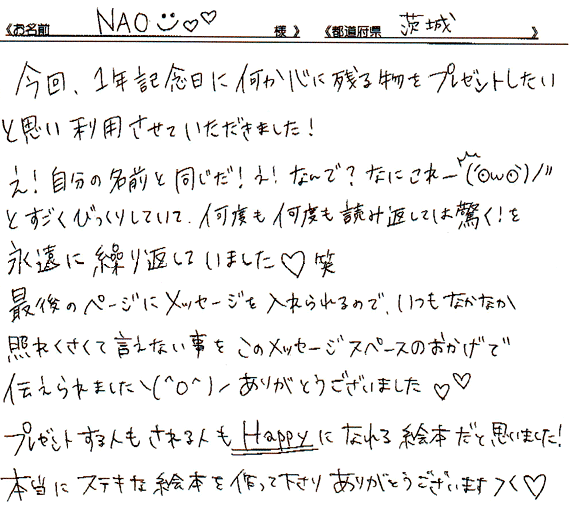 《お名前 NAO☺♡♡ 様》 《都道府県 茨城 》
今回、1年記念日に何か心に残る物をプレゼントしたい
と思い利用させていただきました！
え！自分の名前と同じだ！え！なんで？なにこれー(´⊙ω⊙`)//
とすごくびっくりしていて、何度も何度も読み返しては驚く！を
永遠に繰り返していました♡笑
最後のページにメッセージを入れられるので、いつもなかなか
照れくさくて言えない事をこのメッセージスペースのおかげで
伝えられました＼(^O^)／ありがとうございました♡♡
プレゼントする人もされる人もHappyになれる絵本だと思いました！
本当にステキな絵本を作って下さりありがとうございます＞＜♡